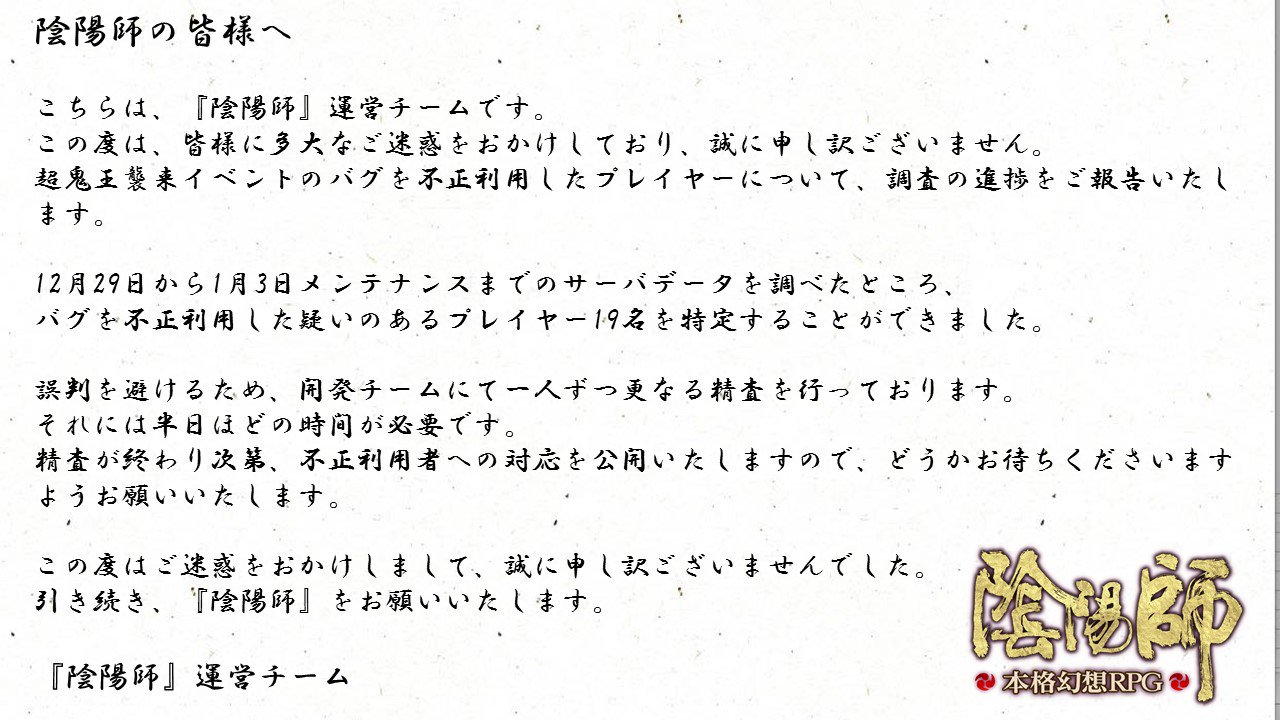 陰陽師の皆様へ
こちらは、『陰陽師』運営チームです。
この度は、皆様に多大なご迷惑をおかけしており、誠に申し訳ございません。
超鬼王襲来イベントのバグを不正利用したプレイヤーについて、調査の進捗をご報告いたし
ます。
12月29日から1月3日メンテナンスまでのサーバデータを調べたところ、
バグを不正利用した疑いのあるプレイヤー19名を特定することができました。
誤判を避けるため、開発チームにて一人ずつ更なる精査を行っております。
それには半日ほどの時間が必要です。
精査が終わり次第、不正利用者への対応を公開いたしますので、どうかお待ちくださいます
ようお願いいたします。
この度はご迷惑をおかけしまして、誠に申し訳ございませんでした。
引き続き、『陰陽師』をお願いいたします。
『陰陽師』運営チーム
陰陽師
本格幻想RPG